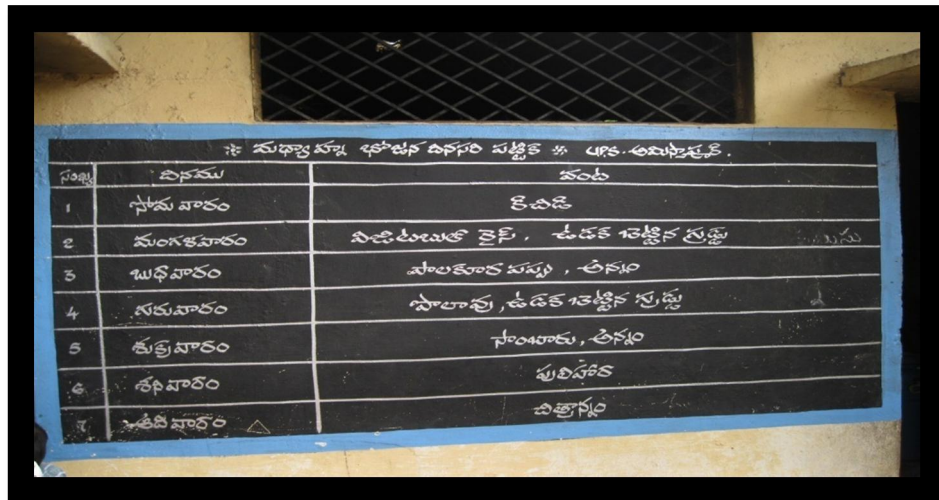 ※ మధ్యాహ్న భోజన దినసరి పట్టిక ※ UPS. అమిస్తాపూర్.
సంఖ్య దినము వంట
1 సోమవారం కిచిడి
2 మంగళవారం విజిటబుల్ రైస్, ఉడక బెట్టిన గ్రుడ్డు
3 బుధవారం పాలకూర పప్పు, అన్నం
4 గురువారం పాలావు, ఉడక బెట్టిన గ్రుడ్డు
5 శుక్రవారం సాంబారు, అన్నం
6 శనివారం పులిహోర
7 ఆదివారం చిత్రాన్నం